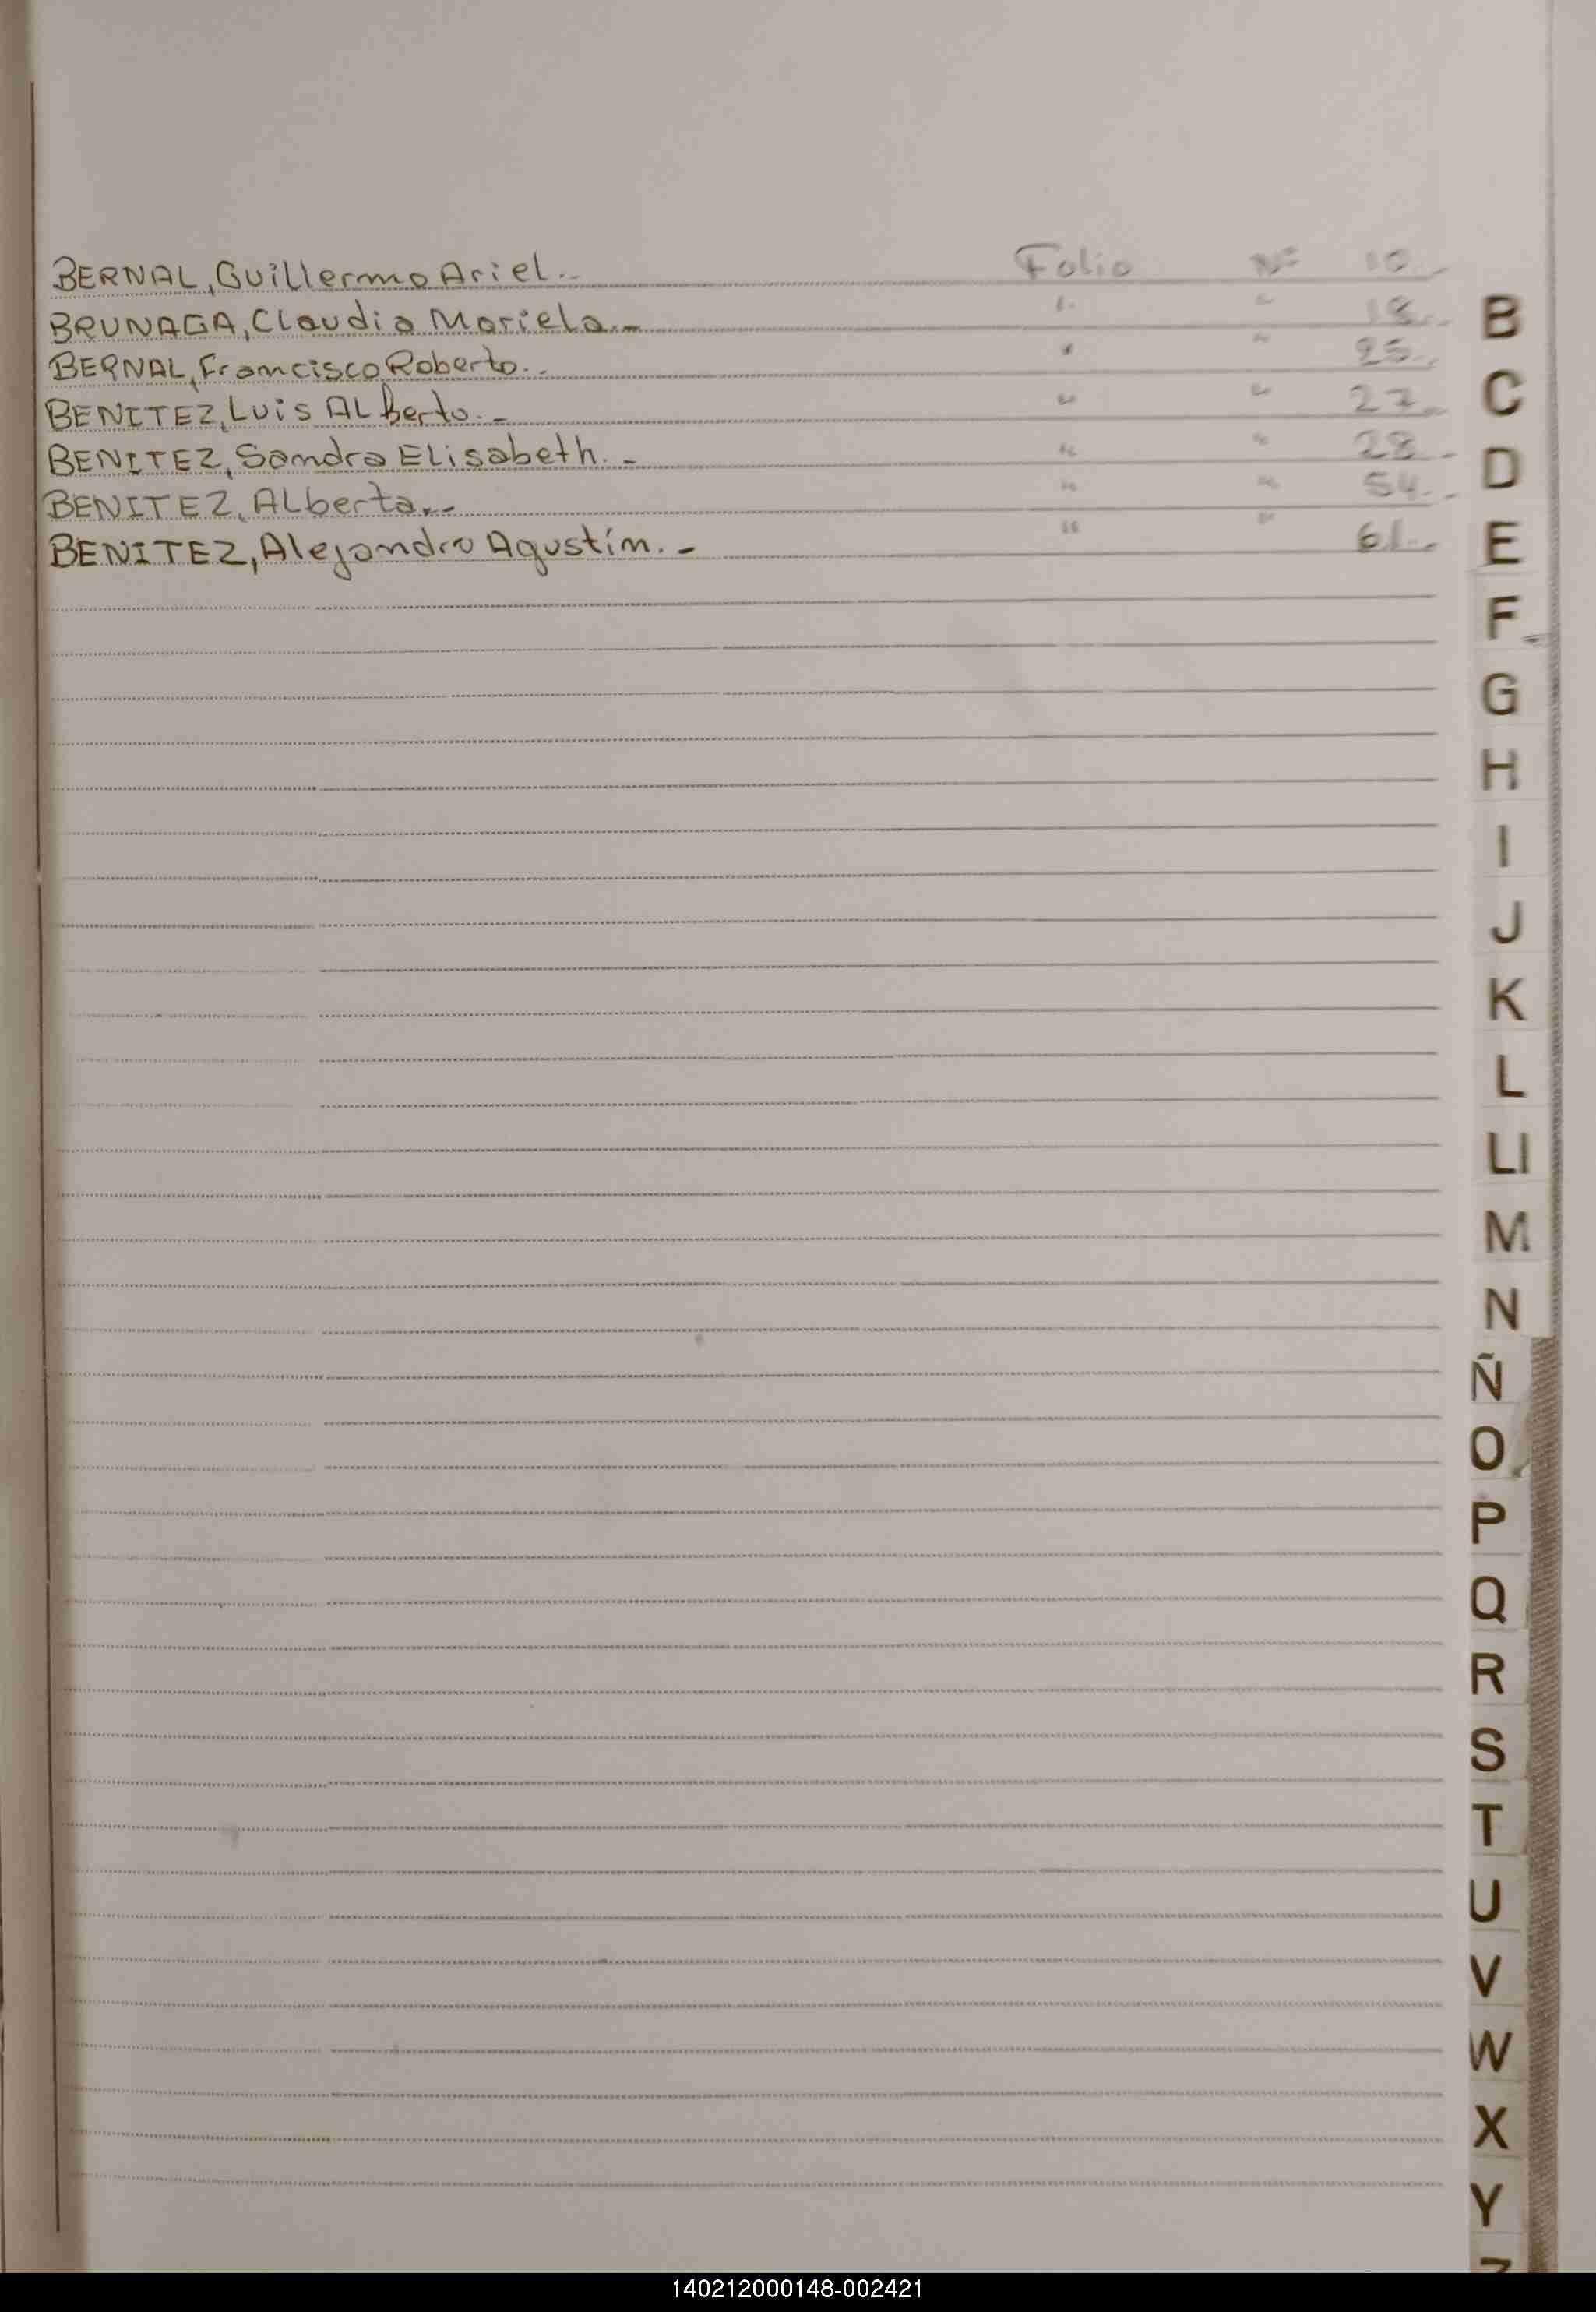 BERNAL, Guillermo Ariel.- Folio Nº 10.-
BRUNAGA, Claudia Mariela.- " " 18.-
BERNAL, Francisco Roberto.- " " 25.-
BENITEZ, Luis ALberto.- " " 27.-
BENITEZ, Sandra ELisabeth.- " " 28.-
BENITEZ, ALberta.- " " 54.-
BENITEZ, Alejandro Agustín.- " " 61.-
B
C
D
E
F
G
H
I
J
K
L
Ll
M
N
Ñ
O
P
Q
R
S
T
U
V
W
X
Y
Z
140212000148-002421